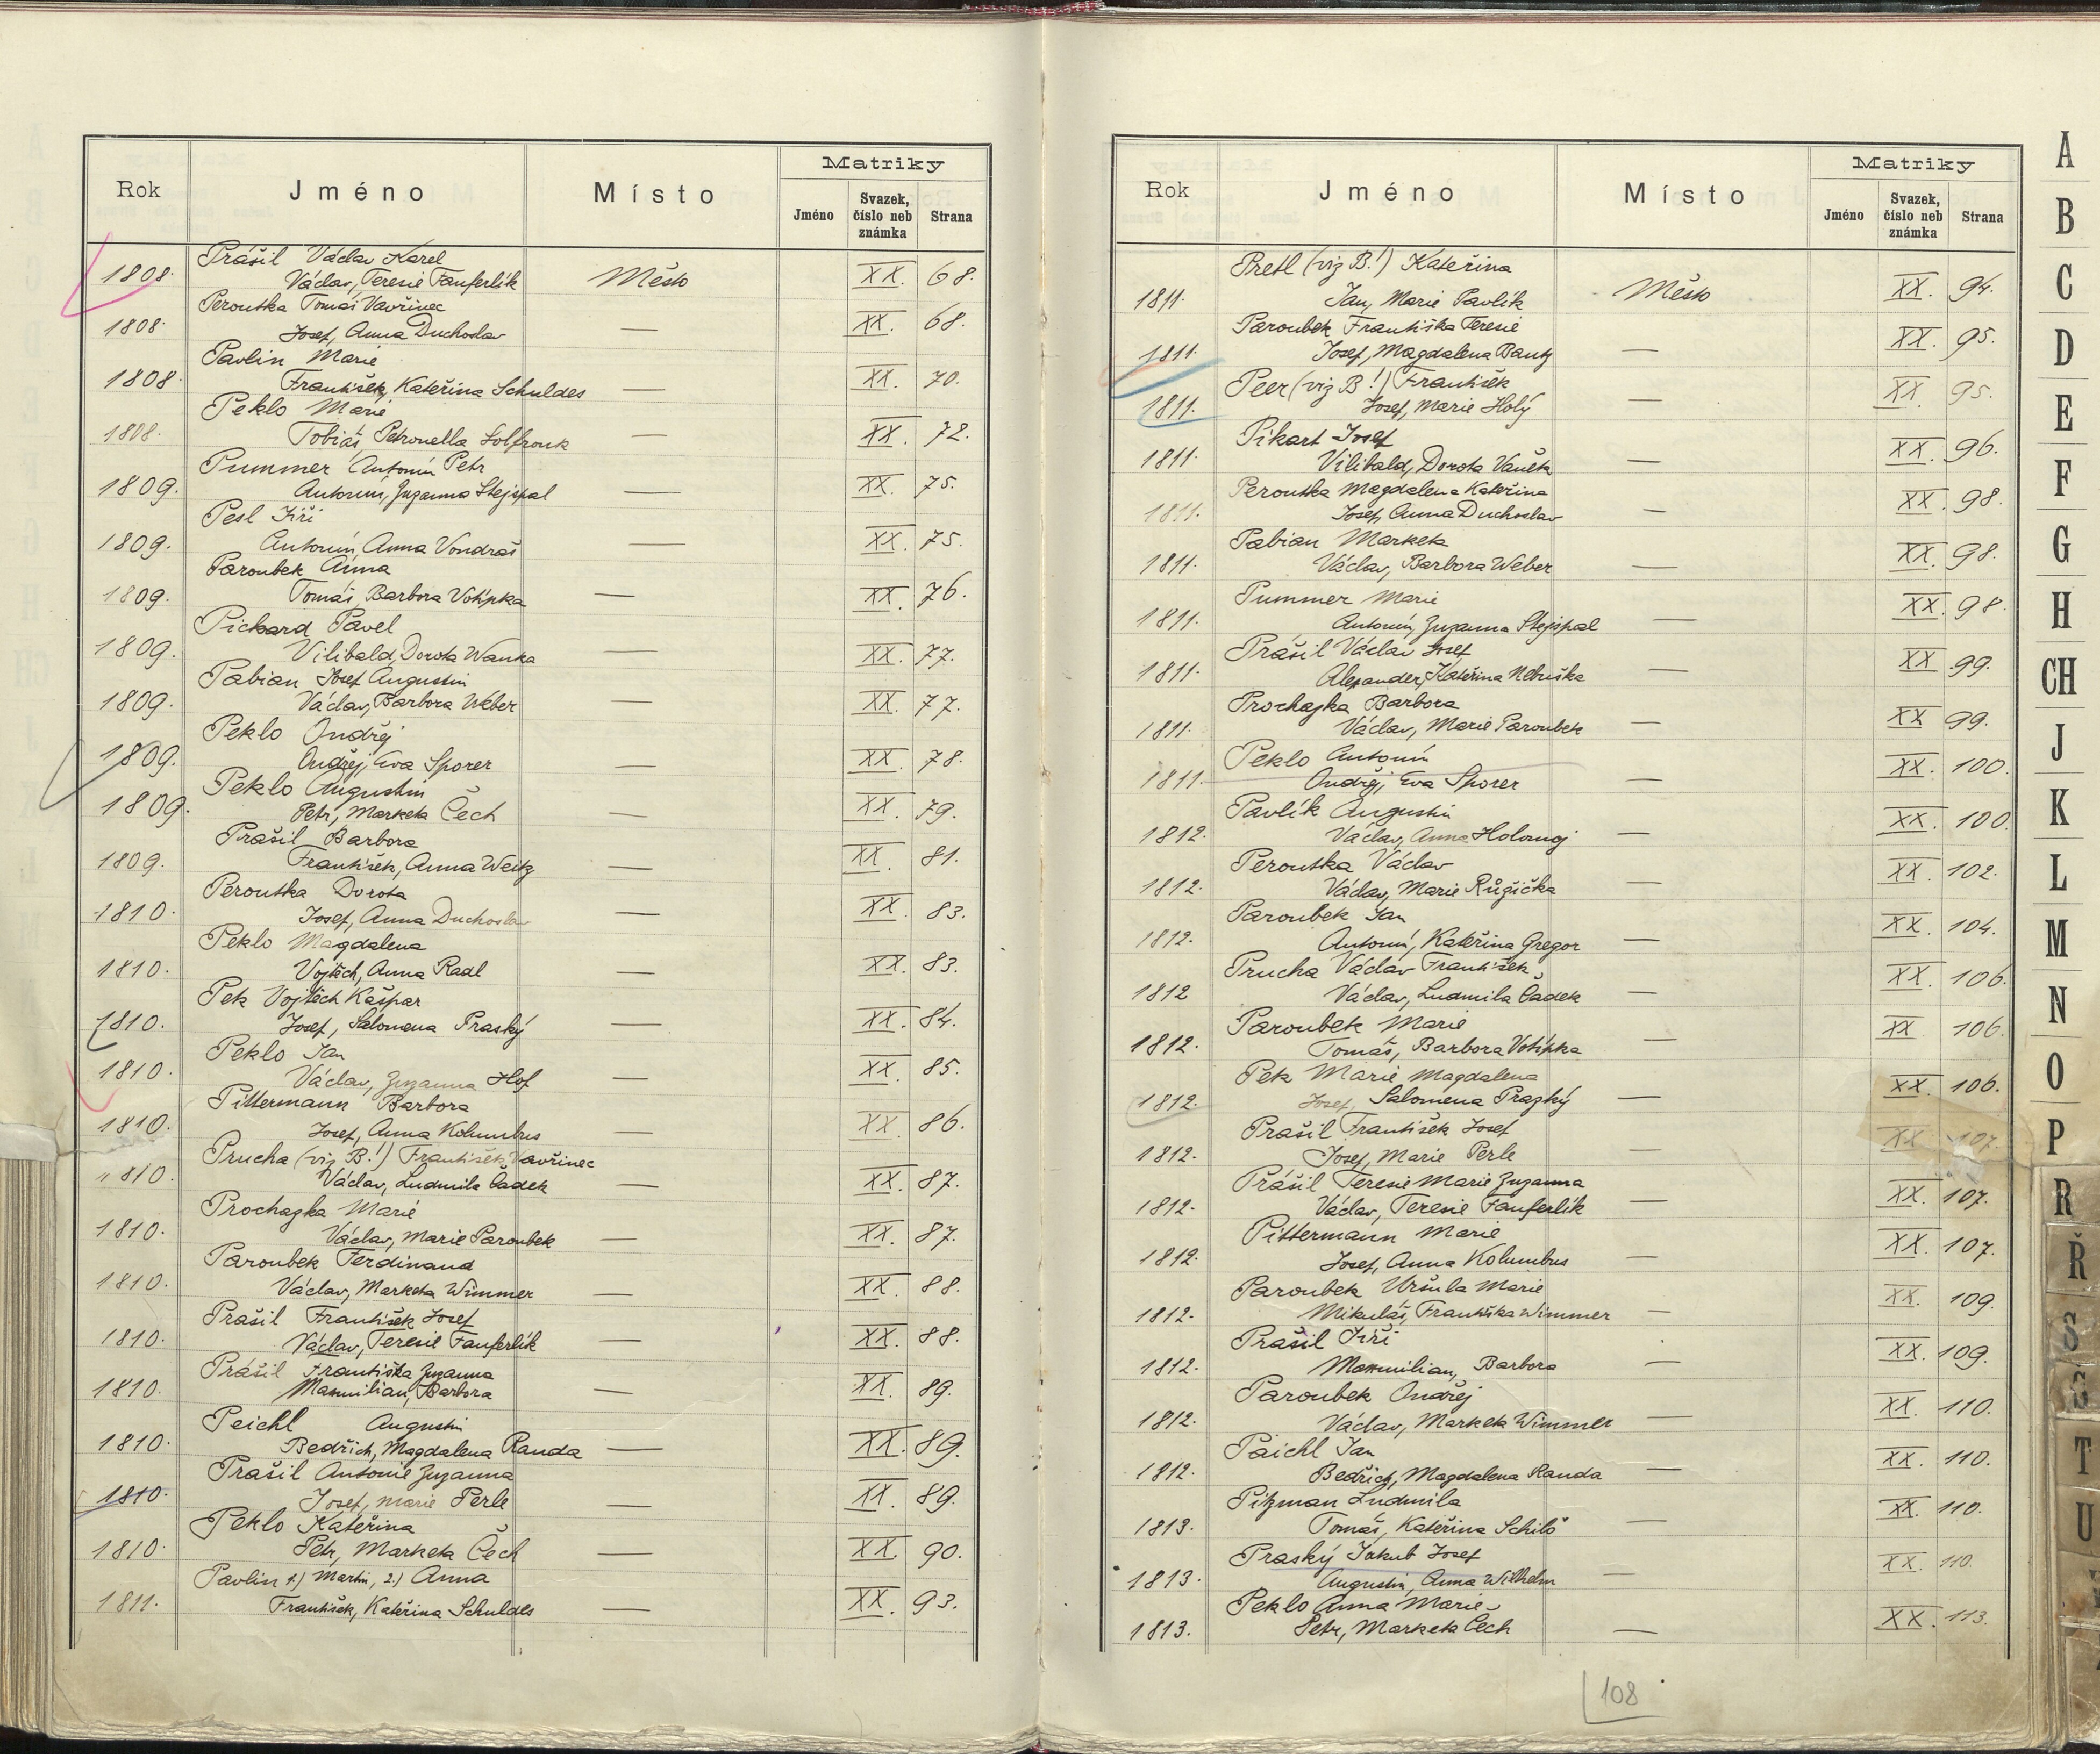 Rok Jméno Místo Matriky
Jméno Svazek, číslo neb známka Strana
Prášil Václav Karel
1808. Václav, Teresie Fanferlík Město XX. 68.
Peroutka Tomáš Vavřinec
1808. Josef, Anna Duchoslav — XX. 68.
Pavlin Marie
1808. František, Kateřina Schuldes — XX. 70.
Peklo Marie
1808. Tobiáš, Petronella Solfronk — XX. 72.
Pummer Antonín Petr
1809. Antonín, Zuzanna Stejspal — XX. 75.
Pesl Jiří
1809. Antonín, Anna Vondraš — XX. 75.
Paroubek Anna
1809. Tomáš, Barbora Votípka — XX. 76.
Pickard Pavel
1809. Vilibald, Dorota Wanka — XX. 77.
Pabian Josef Augustin
1809. Václav, Barbora Weber — XX. 77.
Peklo Ondřej
1809. Ondřej, Eva Sporer — XX. 78.
Peklo Augustin
1809. Petr, Marketa Čech — XX. 79.
Prašil Barbora
1809. František, Anna Weitz — XX. 81.
Peroutka Dorota
1810. Josef, Anna Duchoslav — XX. 83.
Peklo Magdalena
1810. Vojtěch, Anna Radl — XX. 83.
Pek Vojtěch Kašpar
1810. Josef, Salomena Praský — XX. 84.
Peklo Jan
1810. Václav, Zuzanna Hof — XX. 85.
Pittermann Barbora
1810. Josef, Anna Kolumbus — XX. 86.
Prucha (viz B!) František Vavřinec
1810. Václav, Ludmila Čadek — XX. 87.
Prochazka Marie
1810. Václav, Marie Paroubek — XX. 87.
Paroubek Ferdinand
1810. Václav, Marketa Wimmer — XX. 88.
Prašil František Josef
1810. Václav, Teresie Fanferlík — XX. 88.
Prášil Františka Zuzanna
1810. Maxmilian, Barbora — XX. 89.
Peichl Augustin
1810. Bedřich, Magdalena Randa — XX. 89.
Prašil Antonie Zuzanna
1810. Josef, Marie Perle — XX. 89.
Peklo Kateřina
1810. Petr, Marketa Čech — XX. 90.
Pavlin 1.) Martin, 2.) Anna
1811. František, Kateřina Schuldes — XX. 93.
Rok Jméno Místo Matriky
Jméno Svazek, číslo neb známka Strana
Pretl (viz B!) Kateřina
1811. Jan, Marie Pavlík Město XX. 94.
Paroubek Františka Teresie
1811. Josef, Magdalena Bautz — XX. 95.
Peer (viz B!) František
1811. Josef, Marie Holý — XX. 95.
Pikart Josef
1811. Vilibald, Dorota Vaněk — XX. 96.
Peroutka Magdalena Kateřina
1811. Josef, Anna Duchoslav — XX. 98.
Pabian Marketa
1811. Václav, Barbora Weber — XX. 98.
Pummer Marie
1811. Antonín, Zuzanna Stejspal — XX. 98.
Prášil Václav Josef
1811. Alexander, Kateřina Nebuška — XX. 99.
Prochazka Barbora
1811. Václav, Marie Paroubek — XX 99.
Peklo Antonín
1811. Ondřej, Eva Sporer — XX. 100.
Pavlík Augustin
1812. Václav, Anna — XX. 100.
Peroutka Václav
1812. Václav, Marie Růžička — XX. 102.
Paroubek Jan
1812. Antonín, Kateřina Gregor — XX. 104.
Prucha Václav František
1812 Václav, Ludmila Čadek — XX. 106.
Paroubek Marie
1812. Tomáš, Barbora Votípka — XX 106.
Pek Marie Magdalena
1812. Josef, Salomena Prazký — XX. 106.
Prašil František Josef
1812. Josef, Marie Perle — XX 107.
Prášil Teresie Marie Zuzanna
1812. Václav, Teresie Fanferlík — XX. 107.
Pittermann Marie
1812. Josef, Anna Kolumbus — XX. 107.
Paroubek Uršula Marie
1812. Mikuláš, Františka Wimmer — XX. 109.
Prašil Jiří
1812. Maxmilian, Barbora — XX. 109.
Paroubek Ondřej
1812. Václav, Marketa Wimmer — XX. 110.
Paichl Jan
1812. Bedřich, Magdalena Randa — XX. 110.
Pitzman Ludmila
1813. Tomáš, Kateřina Schilo — XX. 110.
Praský Jakub Josef
1813. Augustin, Anna Wilhelm — XX. 110.
Peklo Anna Marie
1813. Petr, Marketa Čech — XX. 113.
108
A
B
C
D
E
F
G
H
CH
J
K
L
M
N
O
P
R
Ř
S
Š
T
U